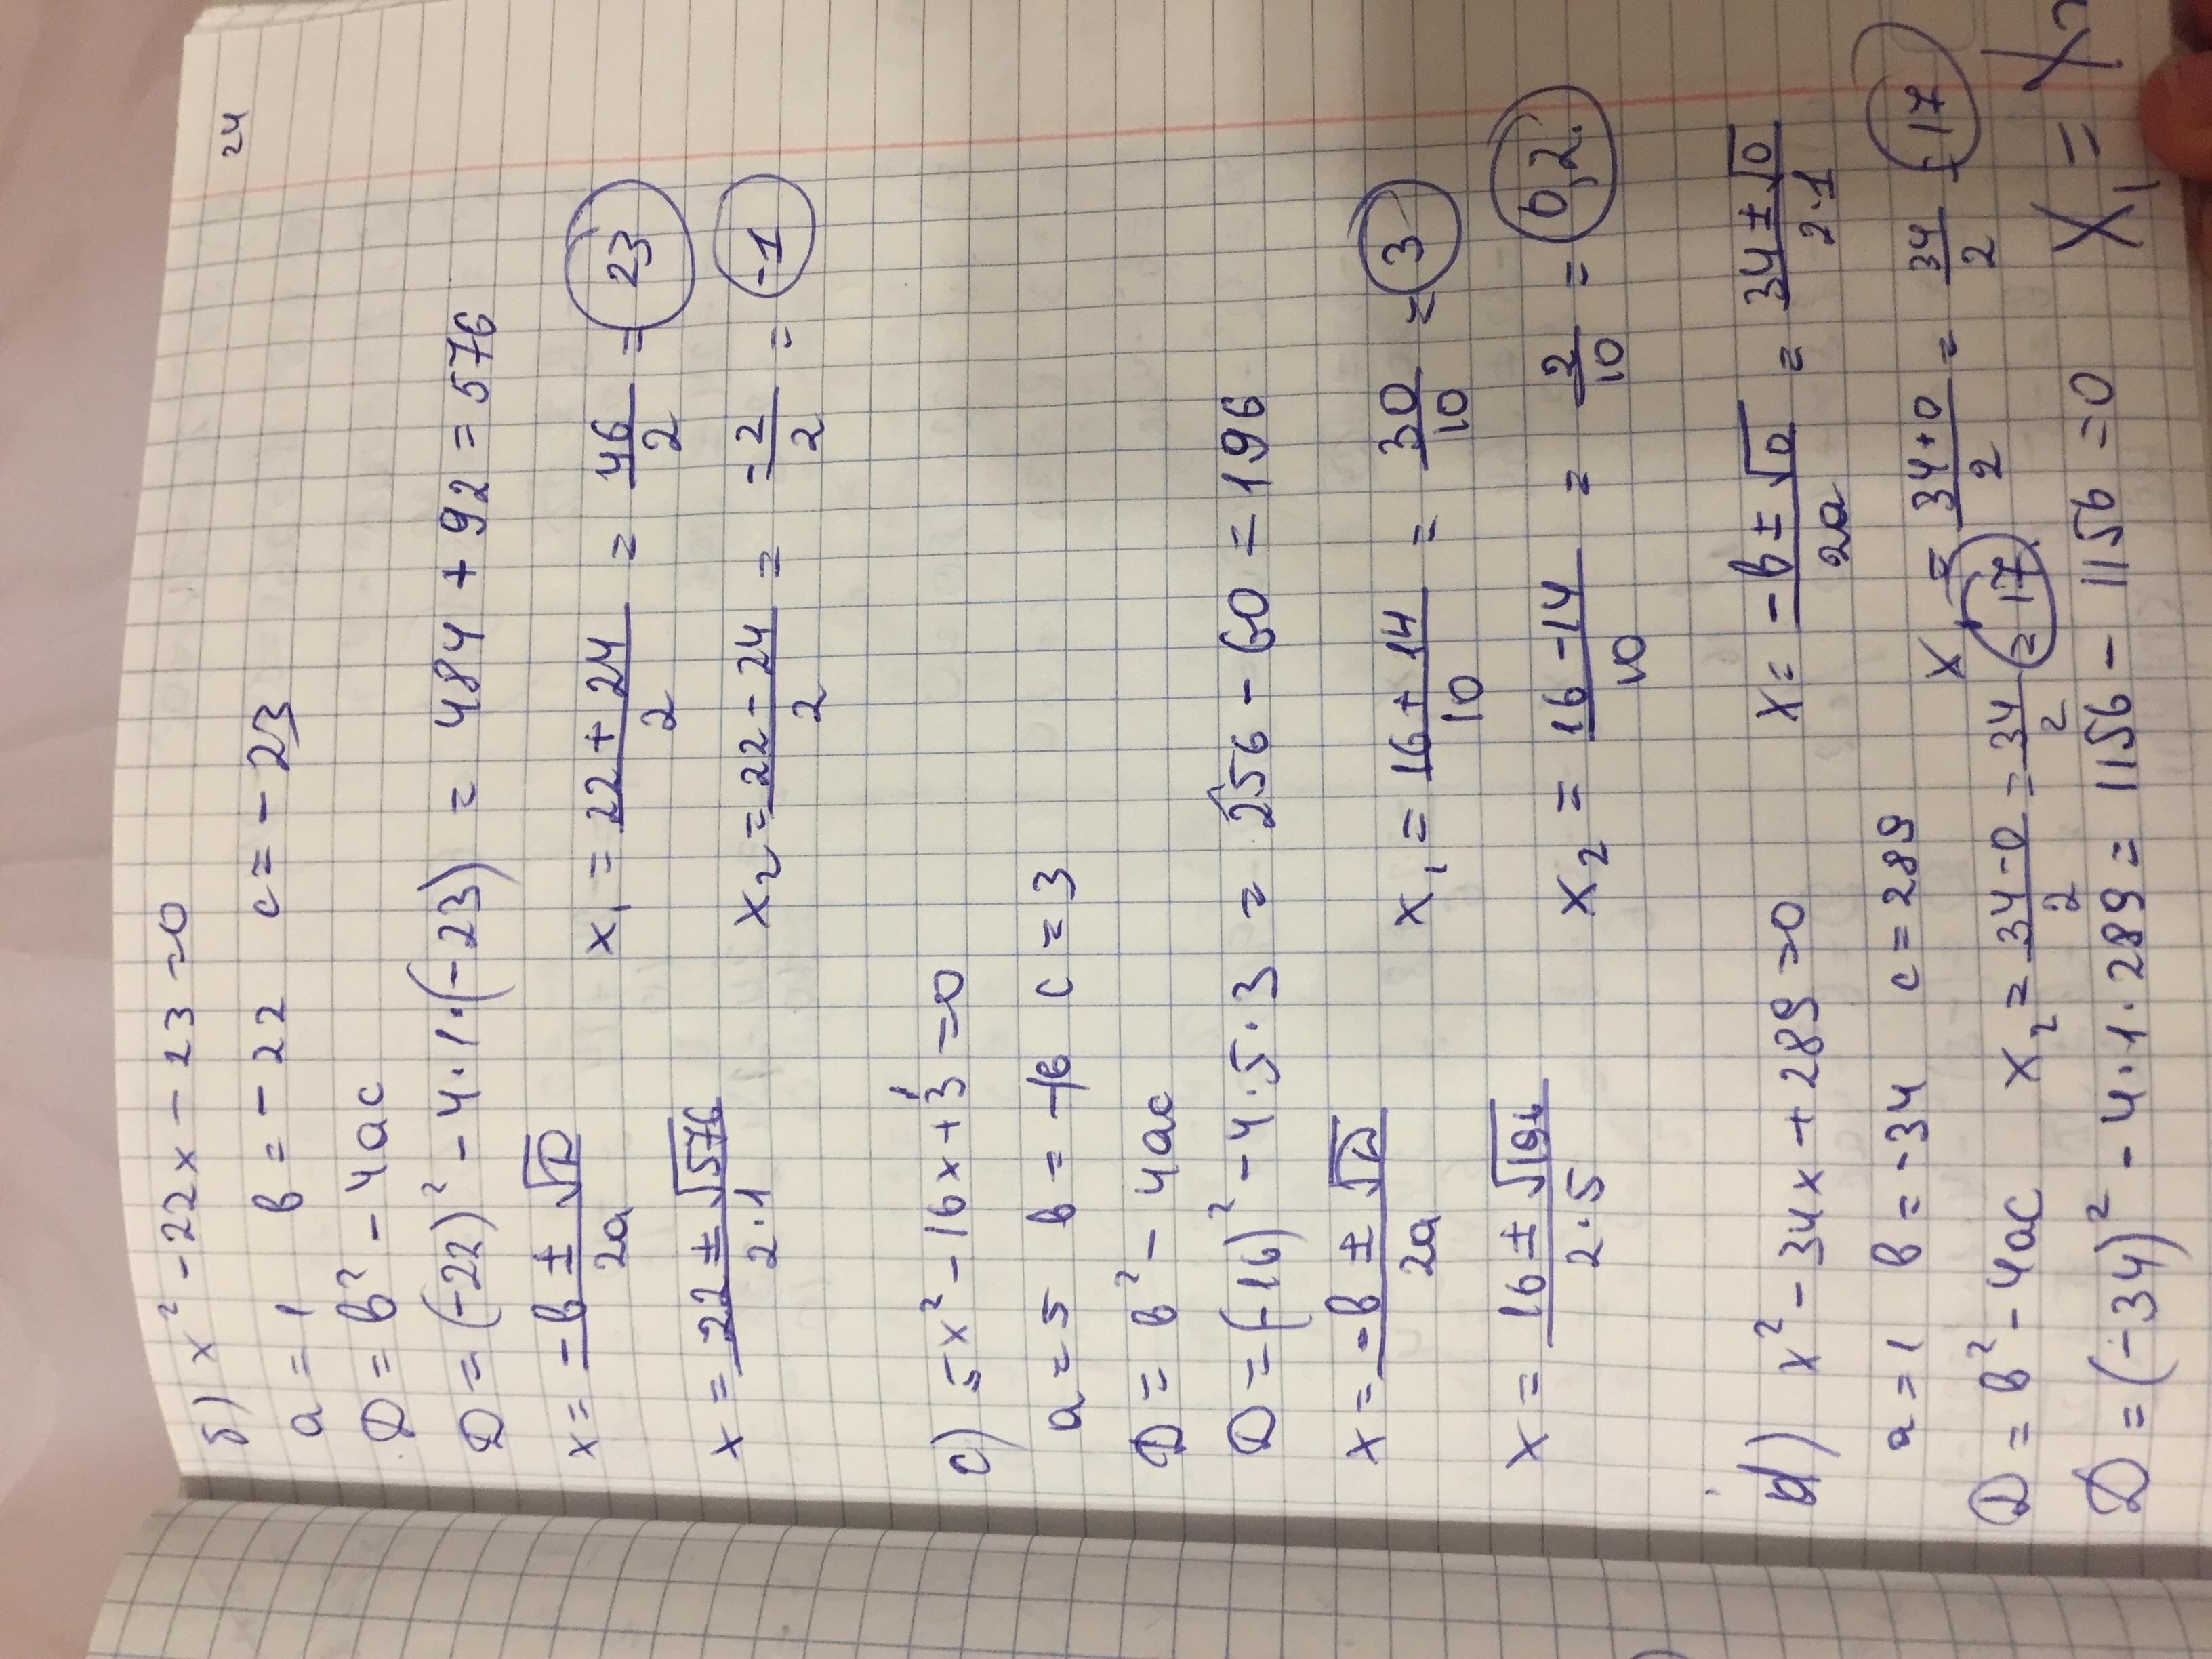 24
б) x² - 22x - 23 = 0
a = 1 b = -22 c = -23
D = b² - 4ac
D = (-22)² - 4·1·(-23) = 484 + 92 = 576
x = -b ± √D / 2a x₁ = 22 + 24 / 2 = 46 / 2 = 23
x = 22 ± √576 / 2·1 x₂ = 22 - 24 / 2 = -2 / 2 = -1
c) 5x² - 16x + 3 = 0
a = 5 b = -16 c = 3
D = b² - 4ac
D = (-16)² - 4·5·3 = 256 - 60 = 196
x = -b ± √D / 2a x₁ = 16 + 14 / 10 = 30 / 10 = 3
x = 16 ± √196 / 2·5 x₂ = 16 - 14 / 10 = 2 / 10 = 0,2
d) x² - 34x + 289 = 0 x = -b ± √D / 2a = 34 ± √0 / 2·1
a = 1 b = -34 c = 289 x = 34 + 0 / 2 = 34 / 2 = 17
D = b² - 4ac x₂ = 34 - 0 / 2 = 34 / 2 = 17
D = (-34)² - 4·1·289 = 1156 - 1156 = 0 X₁ = X₂